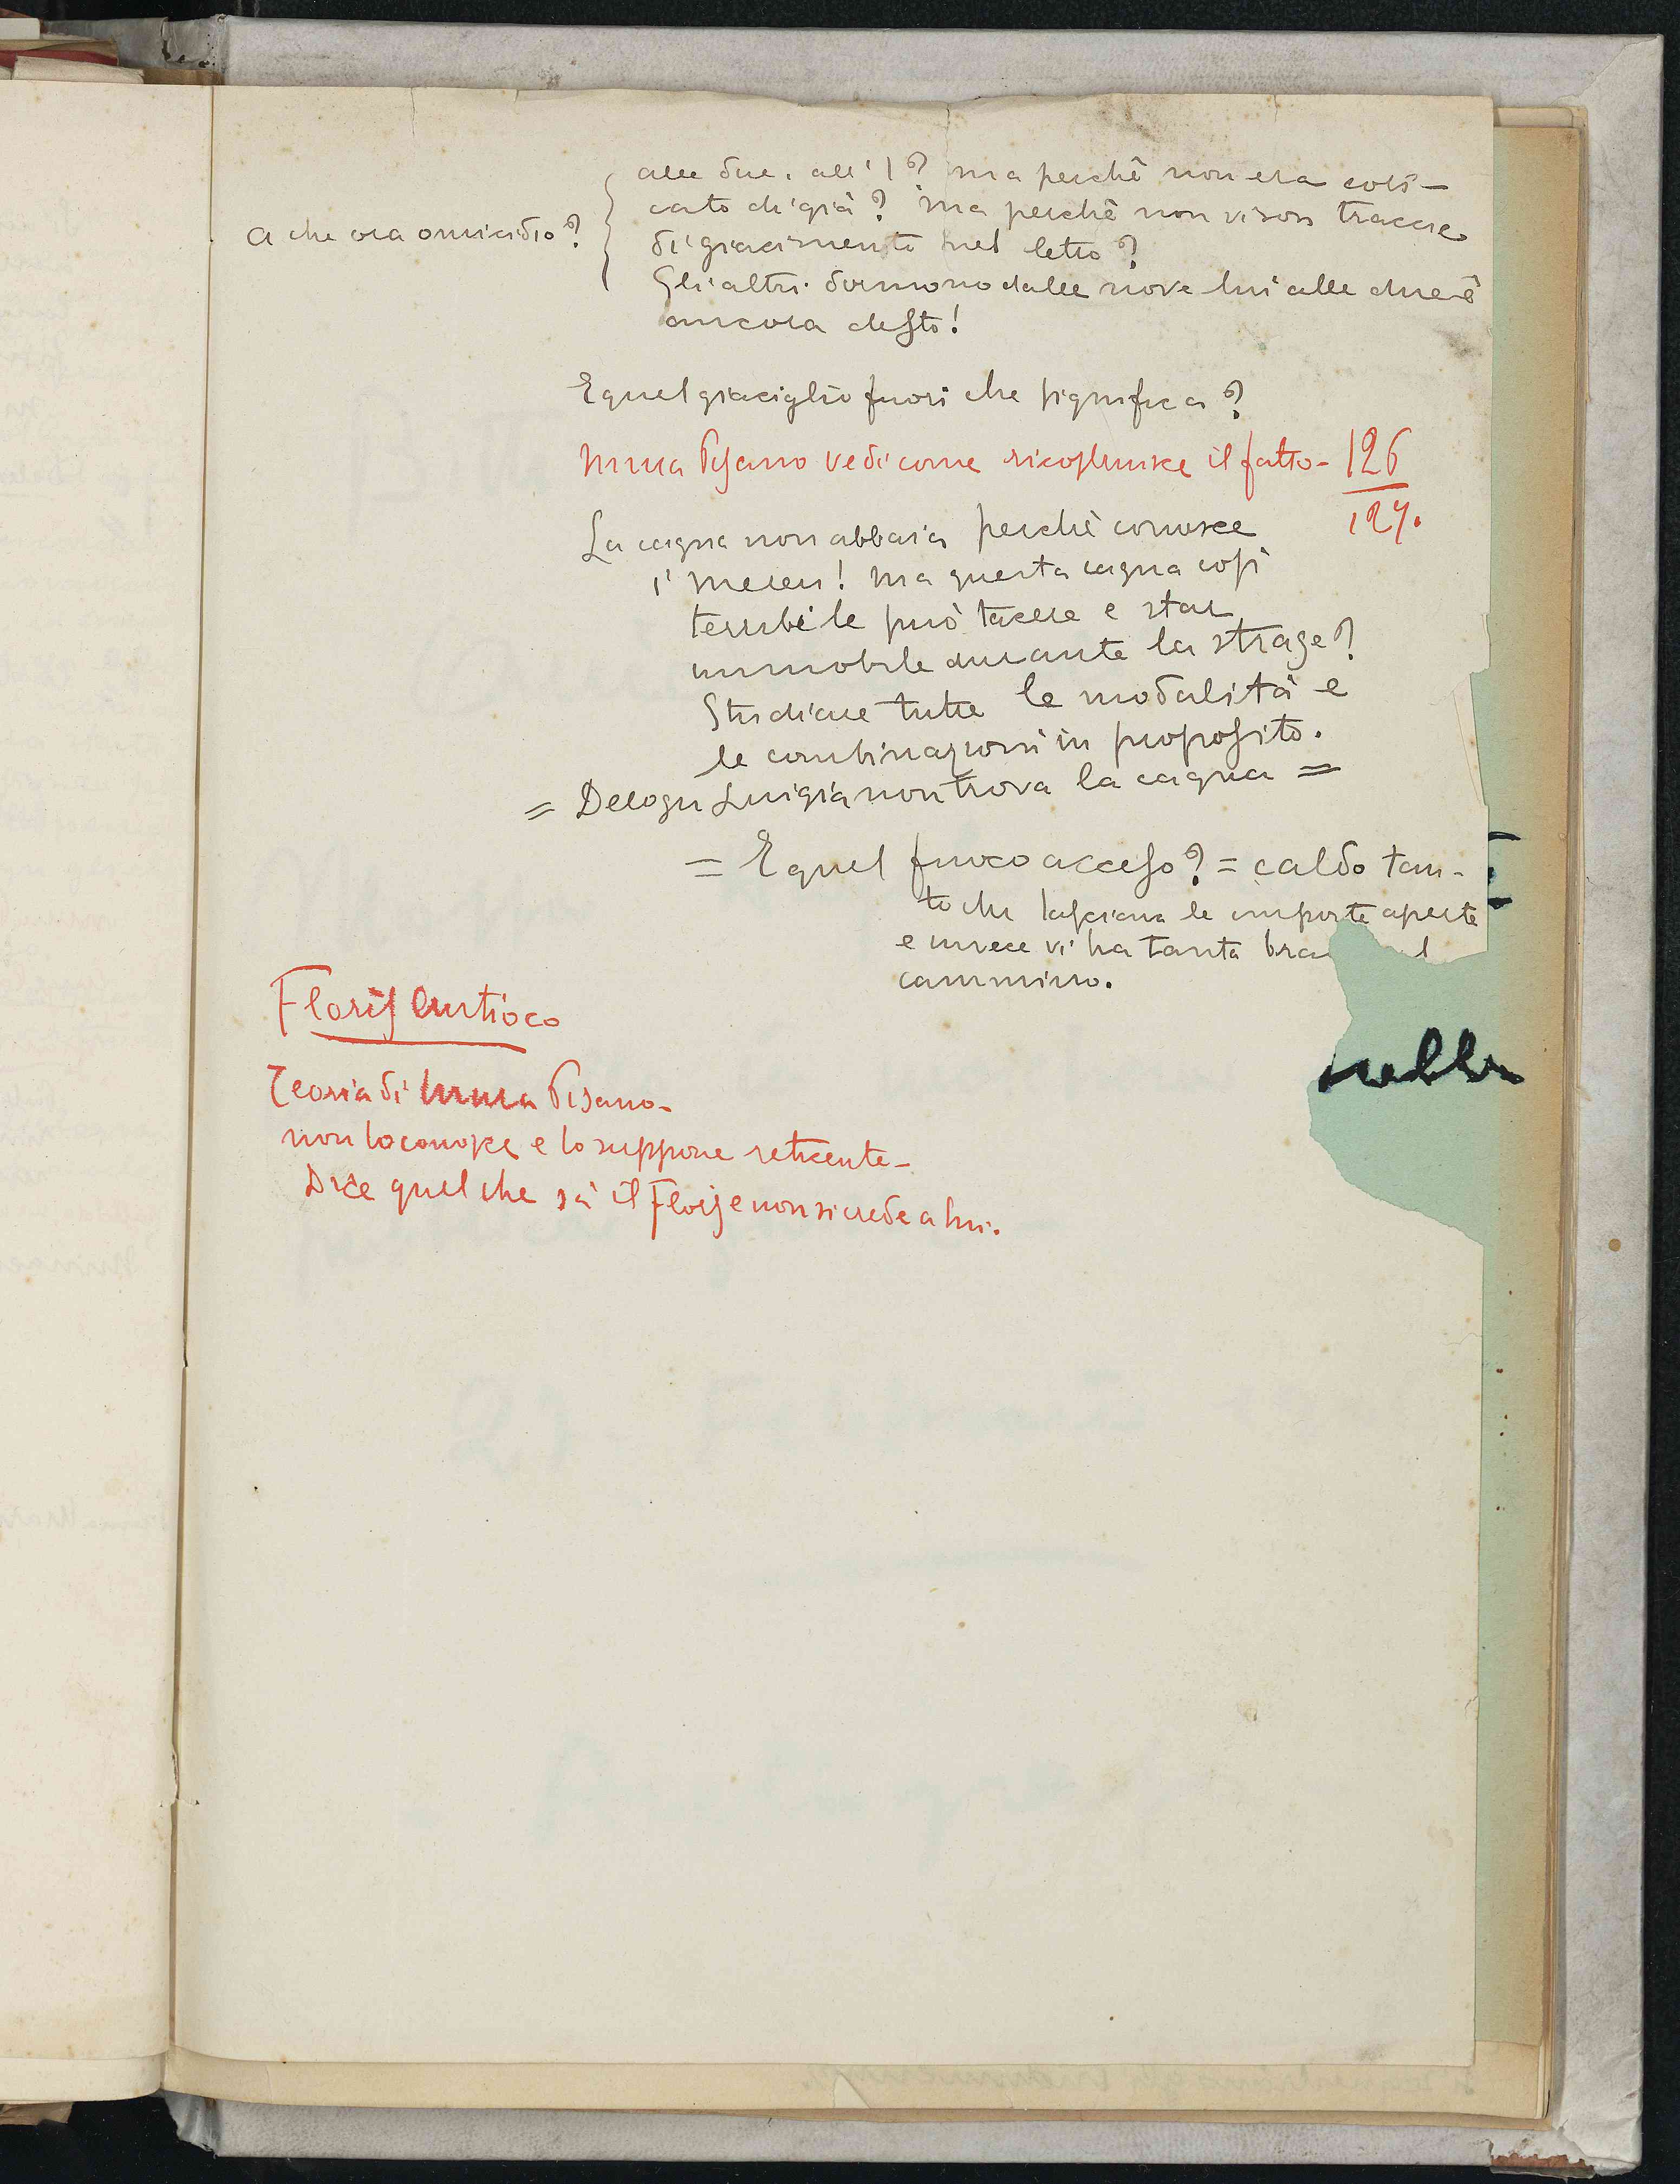 A che ora omicidio?
alle due. all'1? ma perchè non era cori-
cato di già? ma perchè non vi son traccie
di giacimento nel letto?
Gli altri dormono dalle nove lui alle due è
ancora desto!
E quel giaciglio fuori che significa?
Pisano vedi come ricostruisce il fatto - 126
127.
La cagna non abbaia perchè conosce
i Mereu! ma questa cagna così
terribile può tacere e star
immobile durante la strage?
Studiare tutte le modalità e
le combinazioni in proposito.
= Delogu Luigia non trova la cagna =
= E quel fuoco acceso? = caldo tan-
to che lasciano le imposte aperte
e invece vi ha tanta
cammino.
Floris Antioco
Teoria di Pisano -
non lo conosce e lo suppone reticente -
Dice quel che sà il Floris e non si crede a lui.